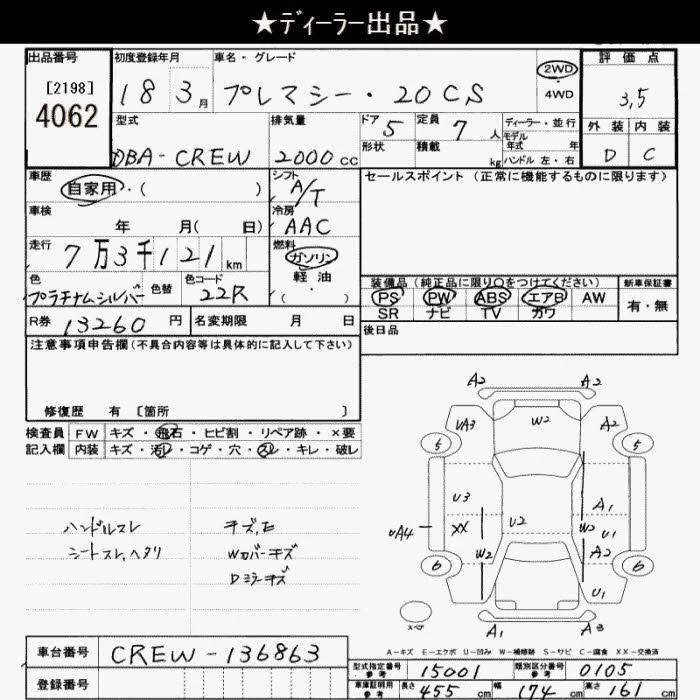 ★ディーラー出品★
出品番号 初度登録年月 車名・グレード 評価点
[2198] 4062 18 3月 プレマシー・20CS 2WD ・ 4WD 3,5
型式 排気量 ドア 5 定員 7人 ディーラー・並行 外装 内装
DBA-CREW 2000cc 形状 積載 kg モデル年式 年 ハンドル 左・右 D C
車歴 自家用・( ) シフト A/T セールスポイント(正常に機能するものに限ります)
車検 年 月( 日) 冷房 AAC
走行 7万3千121km 燃料 ガソリン 軽油 ・( )
色 プラチナムシルバー 色替 色コード 22R
装備品(純正品に限り○をつけてください) 新車保証書
PS PW ABS エアB AW 有・無
SR ナビ TV カワ
R券 13260円 名変期限 月 日 後日品
注意事項申告欄(不具合内容等は具体的に記入して下さい)
修復歴 有 [箇所 ]
検査員 FW キズ・飛石・ヒビ割・リペア跡・×要
記入欄 内装 キズ・汚レ・コゲ・穴・スレ・キレ・破レ
ハンドルスレ キズ,セ
シートスレ,ヘタリ Wカバーキズ
Dミラーキズ
A2 A2
UA3 W2 A2
5 5
U3 A1
UA4 XX U2 W2 U1
W2 A2
6 6
U1
スペア A1 A2 W3
A-キズ E-エクボ U-凹み W-補修跡 S-サビ C-腐食 XX-交換済
車台番号 CREW-136863
型式指定番号 参考 15001 類別区分番号 参考 0105
登録番号
車庫証明用 参考 長さ 455cm 幅 174cm 高さ 161cm